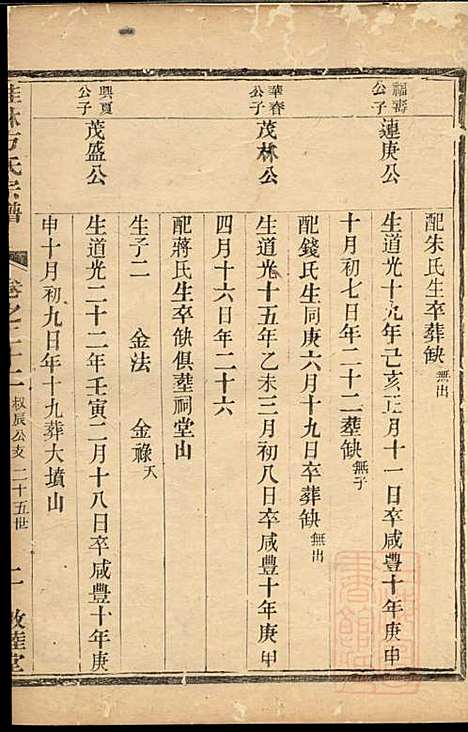 配朱氏生卒葬缺無出
福壽公子
連庚公
生道光十九年己亥正月十一日卒咸豐十年庚申
十月初七日年二十二塟缺無子
配錢氏生同庚六月十九日卒葬缺無出
華春公子
茂林公
生道光十五年乙未三月初八日卒咸豐十年庚申
四月十六日年二十六
配蔣氏生卒缺俱塟祠堂山
生子二 金法 金祿夭
興夏公子
茂盛公
生道光二十二年壬寅二月十八日卒咸豐十年庚
申十月初九日年十九葬大墳山
桂林方氏宗譜 卷之三十二 叔辰公支 二十五世 二 敦睦堂